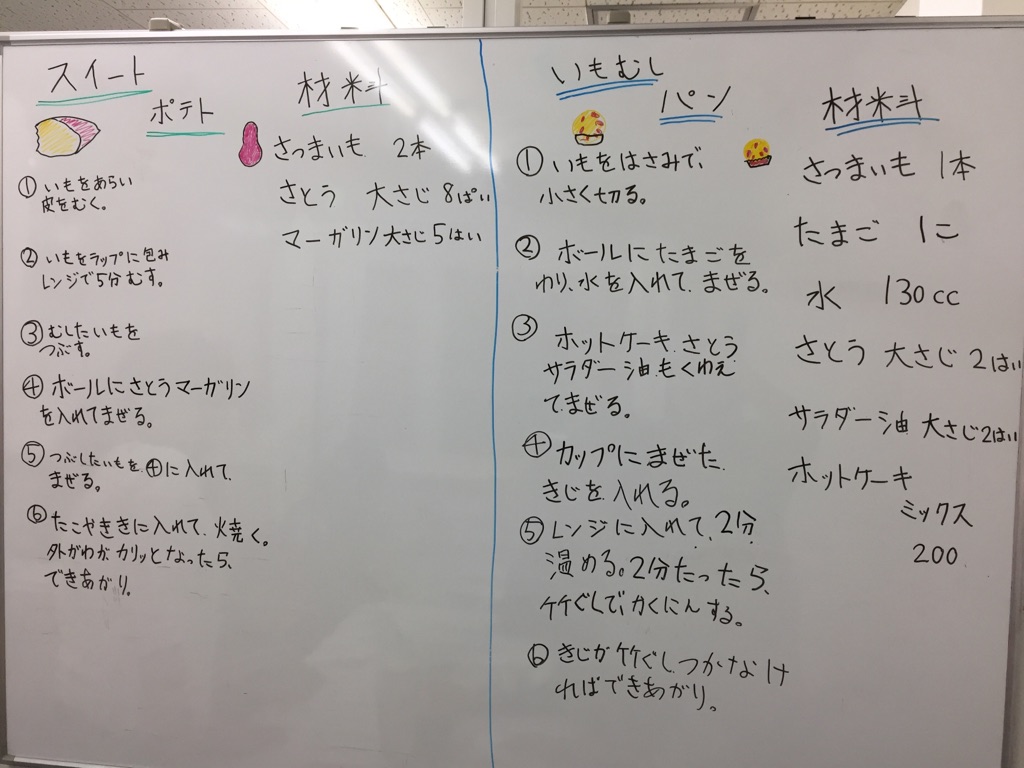 スイート
ポテト
材料
さつまいも 2本
さとう 大さじ 8ぱい
マーガリン大さじ5はい
①いもをあらい
皮をむく。
②いもをラップに包み
レンジで5分むす。
③むしたいもを
つぶす。
④ボールにさとうマーガリン
を入れてまぜる。
⑤つぶしたいもを④に入れて、
まぜる。
⑥たこやききに入れて、焼く。
外がわがカリッとなったら、
できあがり。
いもむし
パン
材料
さつまいも 1本
たまご 1こ
水 130cc
さとう 大さじ2はい
サラダー油 大さじ2はい
ホットケーキ
ミックス
200
①いもをはさみで、
小さく切る。
②ボールにたまごを
わり、水を入れて、まぜる。
③ホットケーキ、さとう、
サラダー油もくわえ
てまぜる。
④カップにまぜた、
きじを入れる。
⑤レンジに入れて、2分
温める。2分たったら、
竹ぐしで、かくにんする。
⑥きじが竹ぐしつかなけ
ればできあがり。